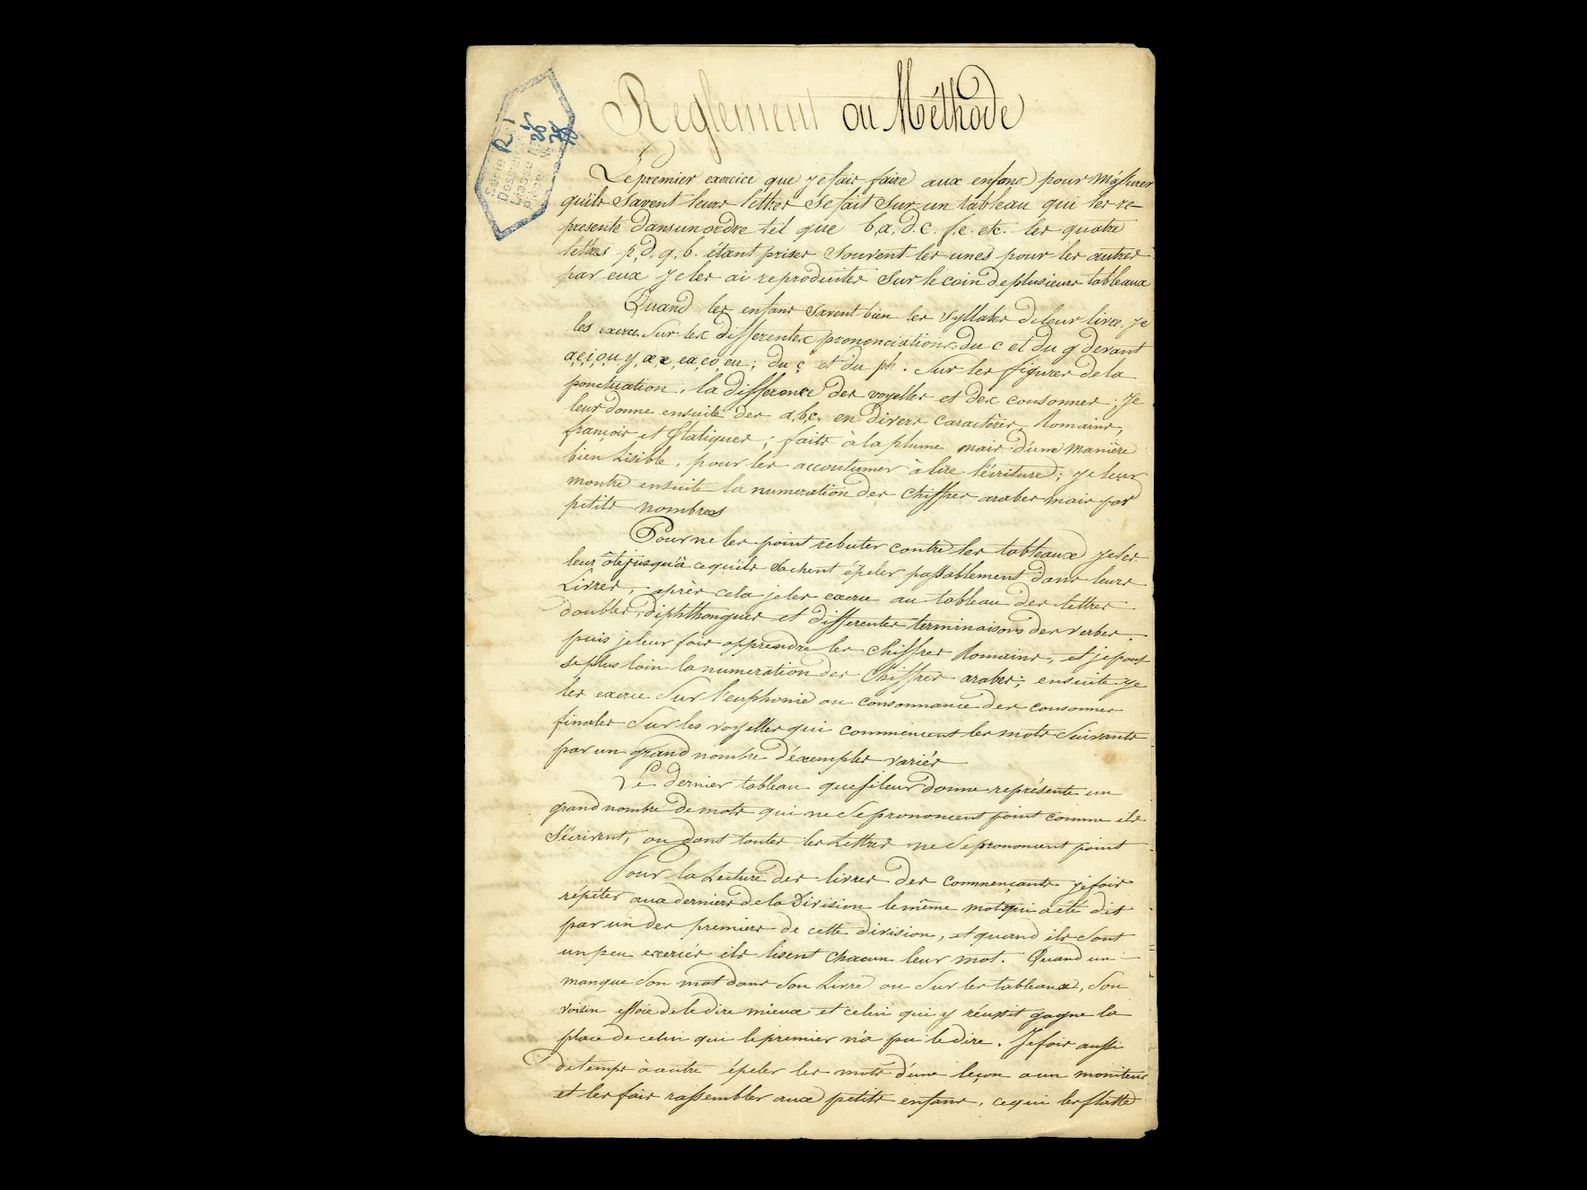 Série R 1
Dossier
Liasse N° 26
Pièce N° 28
Reglement ou Méthode
Le premier exercice que je fais faire aux enfans pour m'assurer
qu'ils savent leurs lettres se fait sur un tableau qui les re
presente dans un ordre tel que b,a,d.c. f.e. etc. les quatre
lettres p,d,q,b. étant prises souvent les unes pour les autres
par eux je les ai reproduites sur le coin de plusieurs tableaux
Quand les enfans savent bien les syllabes de leur livre, je
les exerce sur les differentes prononciations du c et du g devant
a,e,i,o,u y, æ œ, ea, eo, eu; du ç et du ph. Sur les figures de la
ponctuation, la différence des voyelles et des consonnes; Je
leur donne ensuite des a,b,c, en divers caractères Romains,
françois et Italiques; faits à la plume mais d'une manière
bien lisible, pour les accoutumer à lire l'écriture; je leur
montre ensuite la numération des chiffres arabes mais par
petits nombres
Pour ne les point rebuter contre les tableaux je les
leur ôte jusqu'à ce qu'ils sachent épeler passablement dans leurs
Livres; après cela je les exerce au tableau des lettres
doubles, diphthongues et differentes terminaisons des verbes.
puis je leur fais apprendre les chiffres Romains, et je pous
se plus loin la numération des chiffres arabes; ensuite je
les exerce sur l'euphonie ou consonnance des consonnes
finales sur les voyelles qui commencent les mots suivants
par un grand nombre d'exemples variés
Le dernier tableau que je leur donne représente un
grand nombre de mots qui ne se prononcent point comme ils
s'écrivent, ou dont toutes les Lettres ne se prononcent point
Pour la Lecture des livres des commençants je fais
répéter aux derniers de la Division le même mot qui a été dit
par un des premiers de cette division, et quand ils sont
un peu exercés ils lisent chacun leur mot. Quand un
manque son mot dans son Livre ou sur les tableaux, son
voisin essaie de le dire mieux et celui qui y réussit gagne la
place de celui qui le premier n'a pu le dire. Je fais aussi
de temps à autre épeler les mots d'une leçon a un moniteur
et les fais rassembler aux petits enfans, ce qui les flatte